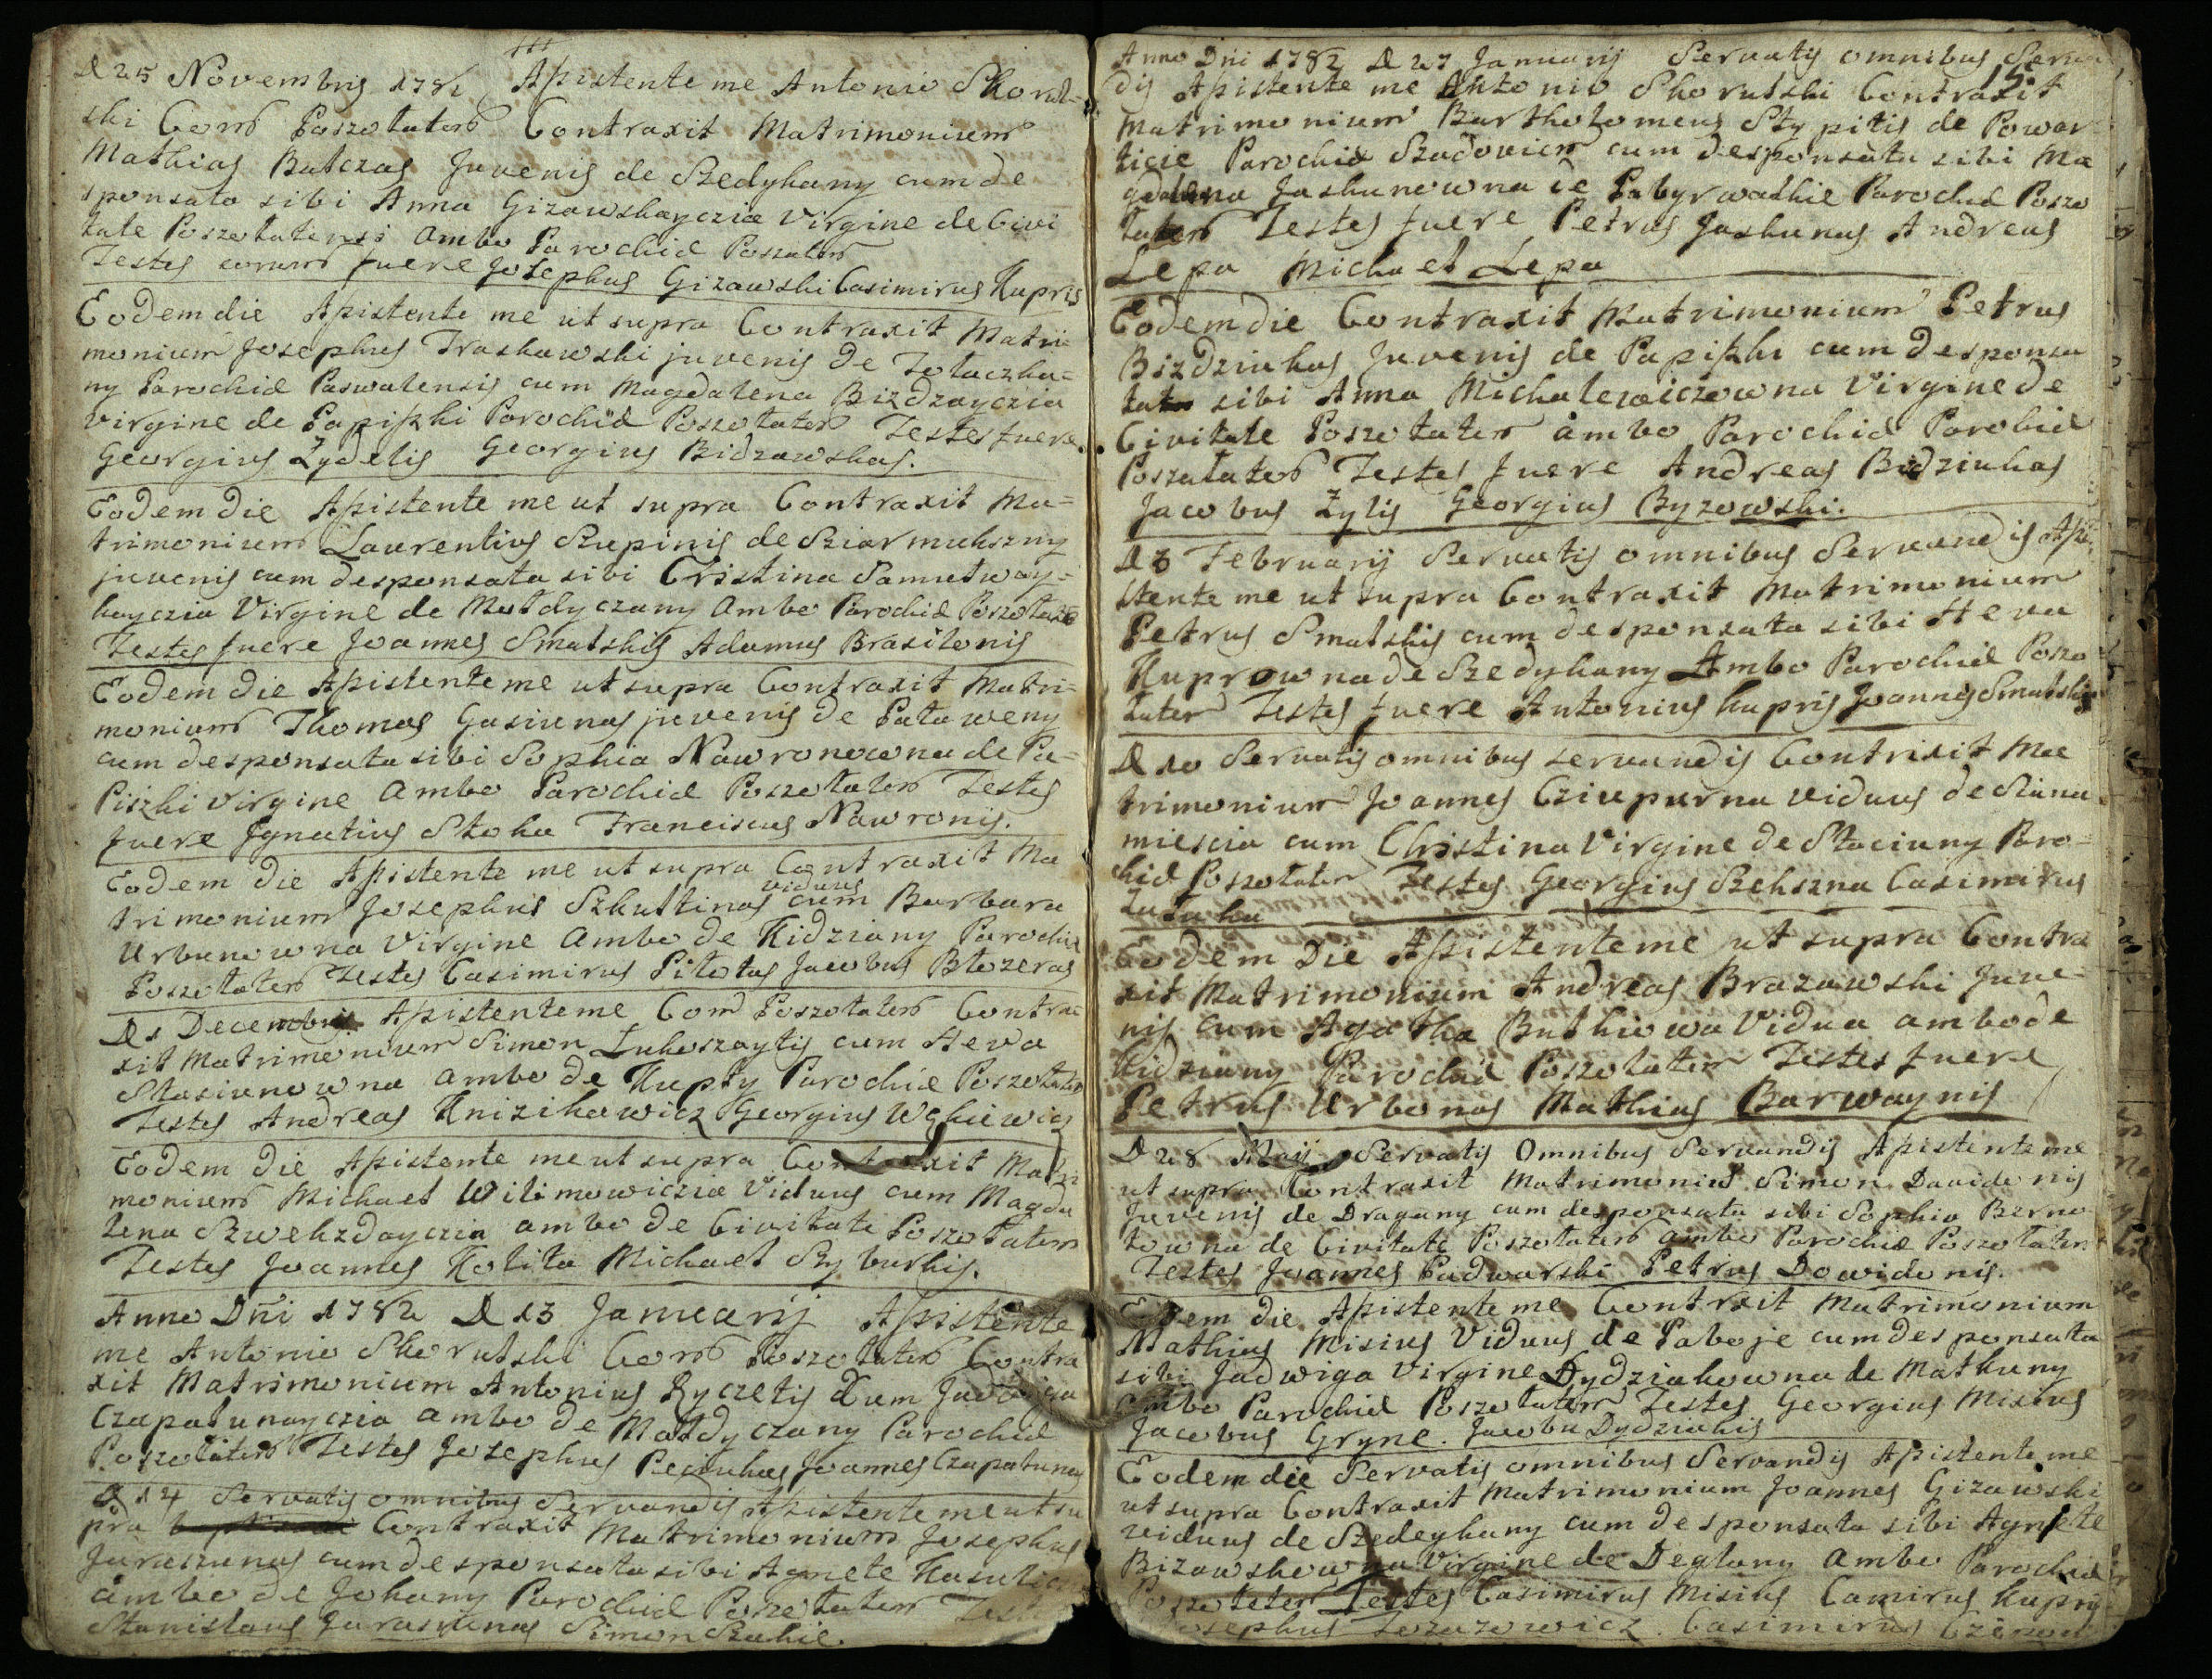 D 25 Novembris 1781 Assistente me Antonio Skorul=
ski Com Poszolaten Contraxit Matrimonium
Mathias Butczas Juvenis de Szedykany cum de
sponsata sibi Anna Gizowskayczia Virgine de Civi
tate Poszolatensi ambo Parochiæ Poszolaten
Testes eorum fuere Josephus Gizowski Casimirus Kupris
Eodem die Assistente me ut supra Contraxit Matri=
monium Josephus Traskowski juvenis de Tolaczka=
ny Parochiæ Paswalensis cum Magdalena Bizdzayczia
virgine de Papiszki Parochiæ Poszolaten Testes fuere
Georgius Zydelis Georgius Bidzowskas.
Eodem die Assistente me ut supra Contraxit Ma=
trimonium Laurentius Szupinis de Sziarmukszny
juvenis cum desponsata sibi Cristina Samulway=
kayczia Virgine de Mutdyczany ambo Parochiæ Poszolate
Testes fuere Joannes Smalskis Adamus Brasilonis
Eodem die Assistente me ut supra Contraxit Matri=
monium Thomas Gasiunas juvenis de Pataweny
cum desponsata sibi Sophia Nawronowna de Pa=
piszki virgine ambo Parochiæ Poszolaten Testes
fuere Jgnatius Skoka Franciscus Nawronis.
Eodem die Assistente me ut supra Contraxit Ma
viduus
trimonium Josephus Szkultinas cum Barbara
Urbunowna Virgine ambo de Kidziany Parochiæ
Poszolaten Testes Casimirus Pilotas Jacobus Blozeras
D 1 Decembris Assistente me Com Poszolaten Contra=
xit Matrimonium Simon Lukoszaytis cum Heva
Stasiunowna ambo de Kupsy Parochiæ Poszolaten
Testes Andreas Knizikowicz Georgius
Eodem die Assistente me ut supra Contraxit Matri
monium Michael Wilimowiczia Viduus cum Magda
lena Szwekzdayczia ambo de Civitate Poszolaten
Testes Joannes Kolita Michael Skyburkis.
Anno Dñi 1782 D 13 Januarij Assistente
me Antonio Skorulski Com Poszolaten Contra
xit Matrimonium Antonius Ryczelis Cum Jadwiga
Czapalunayczia ambo de Matdyczany Parochiæ
Poszolaten Testes Josephus Peciukas Joannes Czapatunas
D 14 Servatis omnibus Servandis Assistente me ut su
pra Contraxit Matrimonium Josephus
Juraszunas cum desponsata sibi Agnete
ambo de Jokany Parochiæ Poszolaten
Stanislaus Juraszunas Simon Szakie.
Anno Dñi 1782 D 27 Januarij Servatis omnibus Serva
15.
dis Assistente me Antonio Skorulski Contraxit
Matrimonium Bartholomeus Stypitis de Powar
ticie Parochiæ Szadovien cum desponsata sibi Ma
gdalena Jaskunowna de Pabyrwalkie Parochiæ Poszo
laten Testes fuere Petrus Jaskunas Andreas
Lepa Michael Lepa
Eodem die Contraxit Matrimonium Petrus
Bizdziukas Juvenis de Papiszki cum desponsa
ta sibi Anna Michalewiczowna Virgine de
Civitate Poszolaten ambo Parochiæ Parobiæ
Poszalaten Testes fuere Andreas Bidziukas
Jacobus Zylis Georgius Byzowski.
D 3 Februarij Servatis omnibus Servandis Assi
stente me ut supra Contraxit Matrimonium
Petrus Smalskis cum desponsata sibi Heva
Kuprowna de Szedykany Ambo Parochiæ Poszo
laten Testes fuere Antonius Kupris Joannes Smalskis
D 10 Servatis omnibus servandis Contrixit Ma
trimonium Joannes Cziupurna viduus de Siana
miescia cum Christina Virgine de Staciuny Paro=
chiæ Poszolaten Testes Georgius Szekszna Casimirus
Latuka
Eodem Die Assistente me ut supra Contra
xit Matrimonium Andreas Brazowski Juve=
nis cum Agatha Butkiowa Vidua ambo de
Kidziuny Parochiæ Poszolaten Testes fuere
Petrus Urbonas Mathias Barwaynis
D 28 Maij Servatis Omnibus Servandis Assistente me
ut supra Contraxit Matrimoniu Simon Dauidonis
Juvenis de Dragany cum desponsata sibi Sophia Berno
towna de Civitate Poszolaten ambo Parochiæ Poszolaten
Testes Joannes Padwarski Petrus Dowidonis.
Eodem die Assistente me Contrxit Matrimonium
Mathias Misius Viduus de Paboje cum desponsata
sibi Jadwiga Virgine Dydziakowna de Matkuny
Ambo Parochiæ Poszolaten Testes Georgius Misius
Jacobus Gryne. Jacobu Dydziakis
Eodem die Servatis omnibus Servandis Assistente me
ut supra Contraxit Matrimonium Joannes Gizowski
viduus de Szedeykany cum desponsata sibi Agnete
Bizowskowna Virgine de Deglany ambo Parochiæ
Poszoleten Testes Casimirus Misius Camirus Kupris
Josephus Casimirus